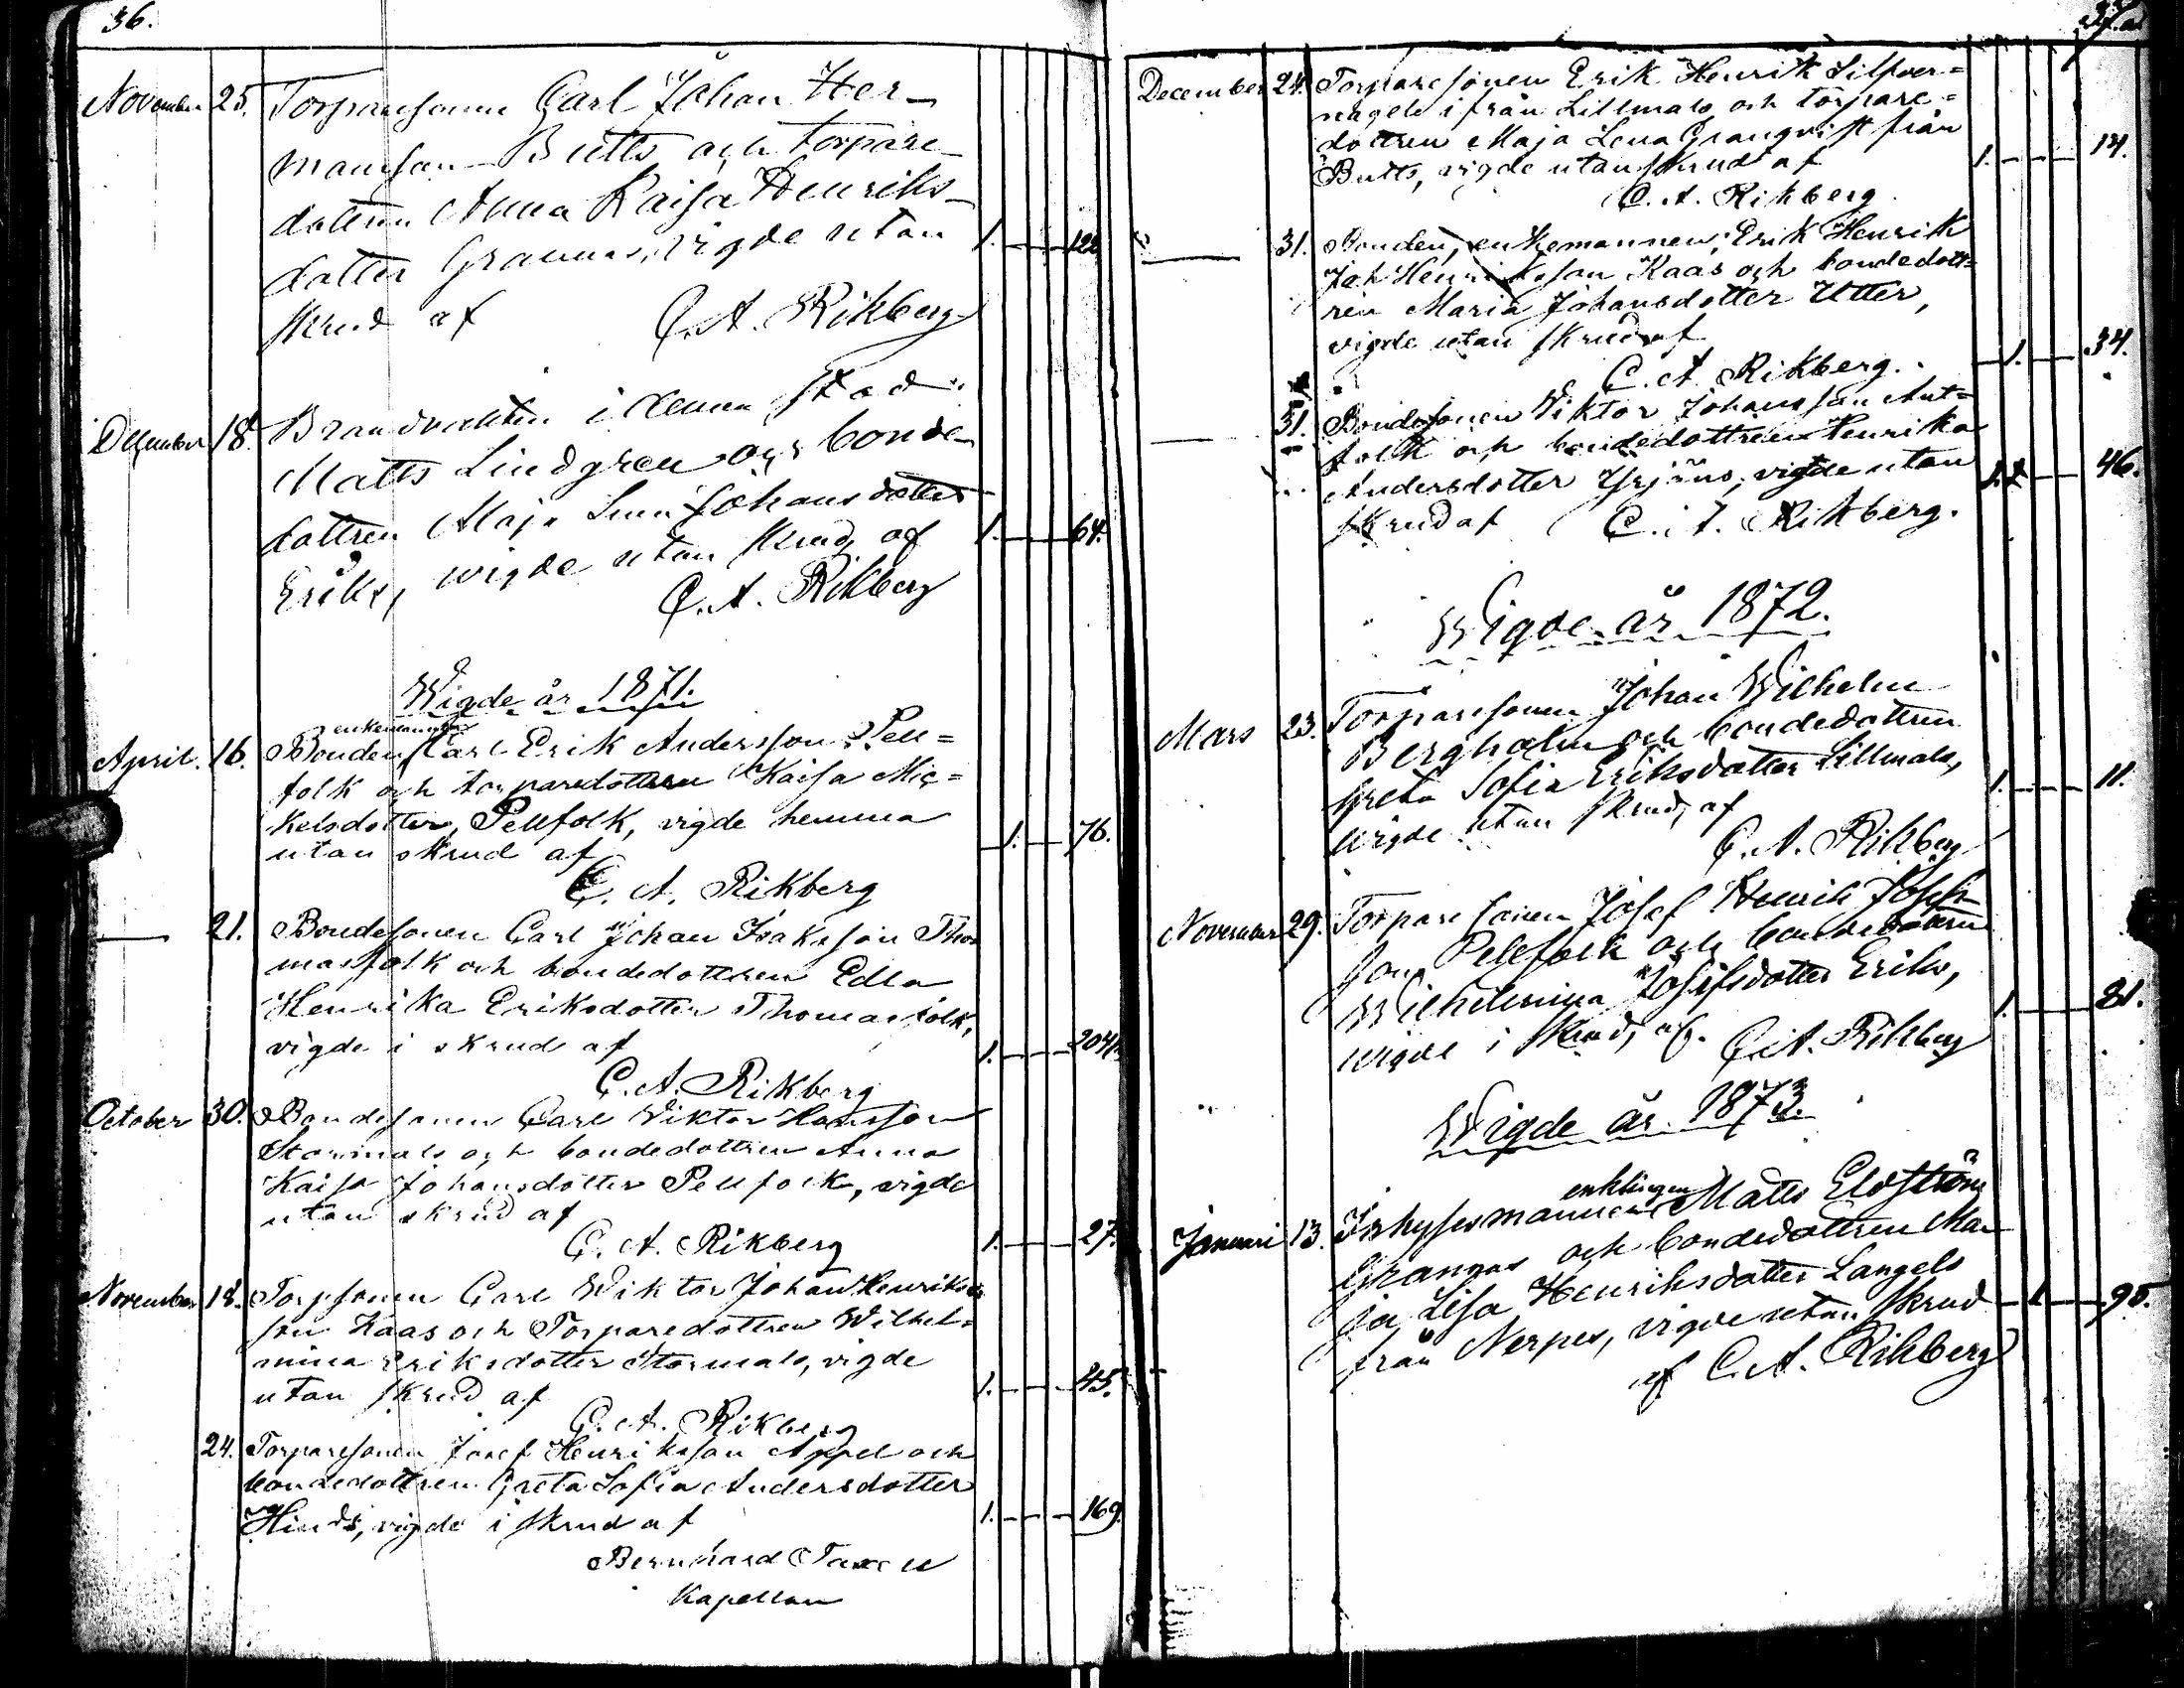 36.
November 25. Torparesonen Carl Johan Her-
mansson Butts och torpare-
dottren Anna Kaisa Henriks-
dotter Grannas, vigde utan
skrud af C. A. Rikberg 1. 122
December 18. Brandvakten i denna stad
Matts Lindgren och bonde-
dottren Maja Lena Johansdotter
Eriks, wigde utan skrud, af 1. 64.
C. A. Rikberg
Wigde år 1871.
enkemannen
April. 16. Bonden Carl Erik Andersson Pell=
folk och torparedottren Kaisa Mic=
kelsdotter, Pellfolk, vigde hemma
utan skrud af 1. 76.
C. A. Rikberg
21. Bondesonen Carl Johan Isaksson Tho
masfolk och bondedottren Edla
Henrika Eriksdotter Thomasfolk,
vigde i skrud af 1. 204.
C. A. Rikberg
October 30. Bondesonen Carl Viktor Hansson
Stormals och bondedottren Anna
Kaisa Johansdotter Pellfolk, vigde
utan skrud af
C. A. Rikberg 1. 27.
November 18. Torpsonen Carl Wiktor Johan Henriks
son Kaas och Torparedottren Wilhel=
mina Eriksdotter Stormals, vigde
utan skrud af 1. 45.
C. A. Rikberg
24. Torparesonen Josef Henriksson Appel och
bondedottren Greta Sofia Andersdotter
Hinds, vigde i skrud af 1. 169.
Bernhard Taxell
Kapellan
37.
December 24. Torparesonen Erik Henrik Silfver=
nagel ifrån Lillmals och torpare=
dottren Maja Lena Granqvist från
Butts, vigde utan skrud af 1. 14.
C. A. Rikberg
31. Bonden, enkemannen, Erik Henrik
Joh Henriksson Kaas och bondedott=
ren Maria Johansdotter Utter,
vigde utan skrud af 1. 34.
C. A. Rikberg.
31. Bondesonen Viktor Johansson Ant=
folk och bondedottren Henrika
Andersdotter Yrjäns, vigde utan 1. 46.
skrud af C. A. Rikberg.
Wigde år 1872.
Mars 23. Torparesonen Johan Wilhelm
Bergholm och bondedottren
Greta Sofia Eriksdotter Lillmals,
wigde utan skrud, af 1. 11.
C. A. Rikberg
November 29. Torparesonen Josef Henrik Josefs-
son Pellfolk och bondedottren
Wilhelmina Josefsdotter Eriks,
wigde i skrud, af. C. A. Rikberg 1. 81.
Wigde år 1873.
enklingen
Januari 13. Inhysesmannen Matts Eldström
Grannas och bondedottren Ma
ja Lisa Henriksdotter Langels
från Nerpes, vigde utan skrud 1. 98.
af C. A. Rikberg